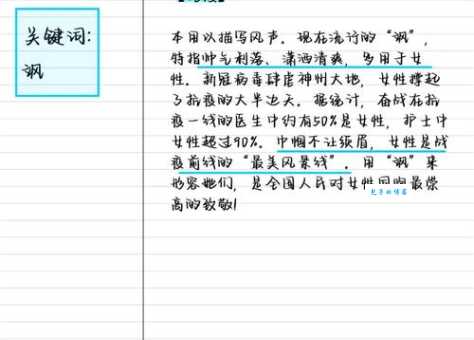 关键词:
飒
本用以描写风声。现在流行的“飒”,
特指帅气利落、潇洒清爽,多用于女
性。新冠病毒肆虐神州大地,女性撑起
了抗疫的大半边天。据统计,奋战在抗
疫一线的医生中约有50%是女性,护士中
女性超过90%。巾帼不让须眉,女性是战
疫前线的“最美风景线”。用“飒”来
形容她们,是全国人民对女性同胞最崇
高的致敬!